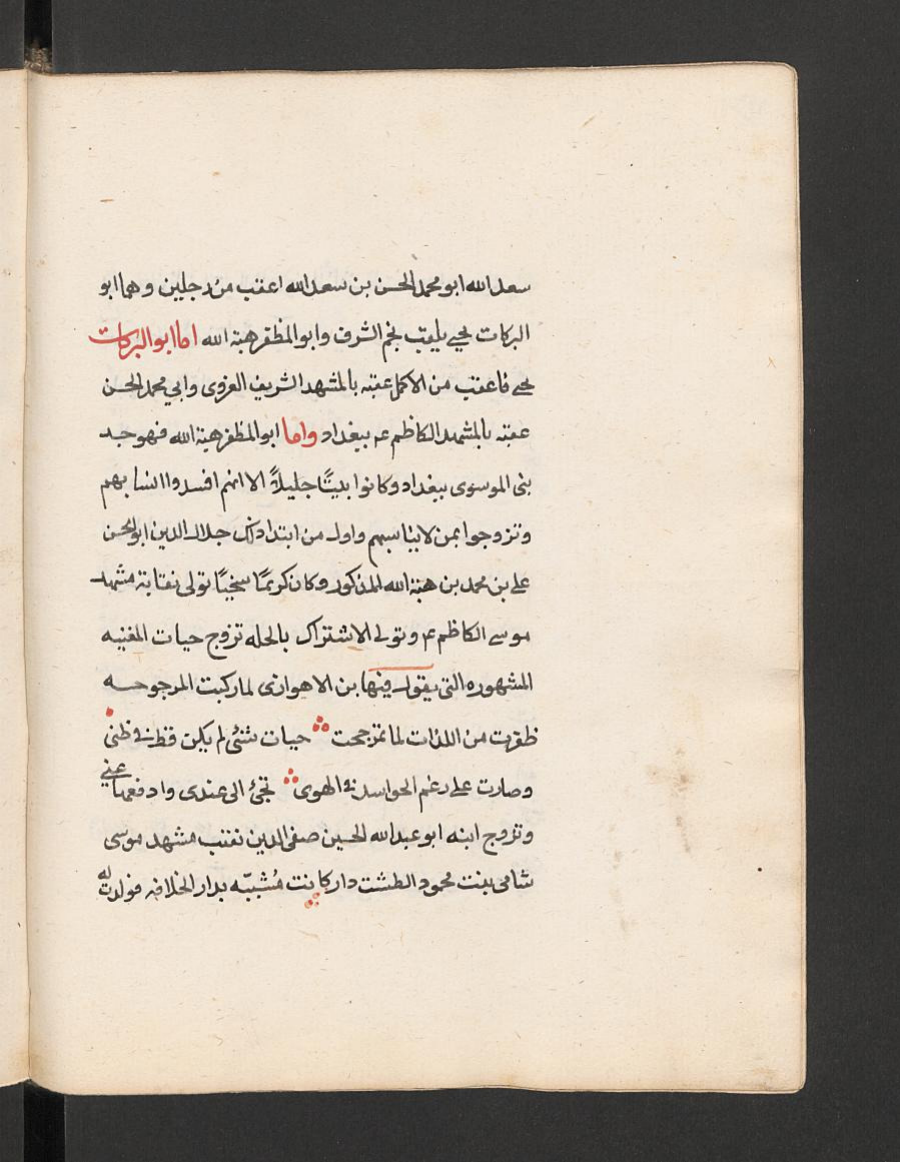 سعد الله ابو محمد الحسن بن سعد الله اعقب من رجلين وهما ابو
البركات يحيى يلقب نجم الشرف وابو المظفر هبة الله اما ابو البركات
يحيى فاعقب من الاكمل عقبه بالمشهد الشريف الغروى وابي محمد الحسن
عقبه بالمشهد الكاظم عم ببغداد واما ابو المظفر هبة الله فهو جد
بنى الموسوى ببغداد وكانوا بيتًا جليلاً الا انهم افسدوا انسابهم
وتزوجوا بمن لا يناسبهم واول من ابتدا ذلك جلال الدين ابو الحسن
على بن محمد بن هبة الله المذكور وكان كريمًا سخيًا تولى نقابة مشهد
موسى الكاظم عم وتولى الاشتراك بالحله تزوج حيات المغنيه
المشهوره التى يقول فيها بن الاهوازى لما ركبت المرجوحه
ظفرت من اللذات لما ترجحت حيات بشئ لم يكن قط فى ظنى
وصارت على رغم الحواسد فى الهوى تجئ الى عندى وادفعها عنى
وتزوج ابنه ابو عبد الله الحسين صفى الدين نقيب مشهد موسى
شامى بنت محمود الطشت دار كانت مُشببّه بدار الخلافه فولدت له